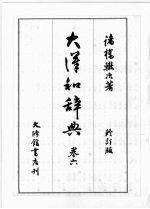 諸橋轍次著
大漢和辞典 巻六
修訂版
大修館書店刊